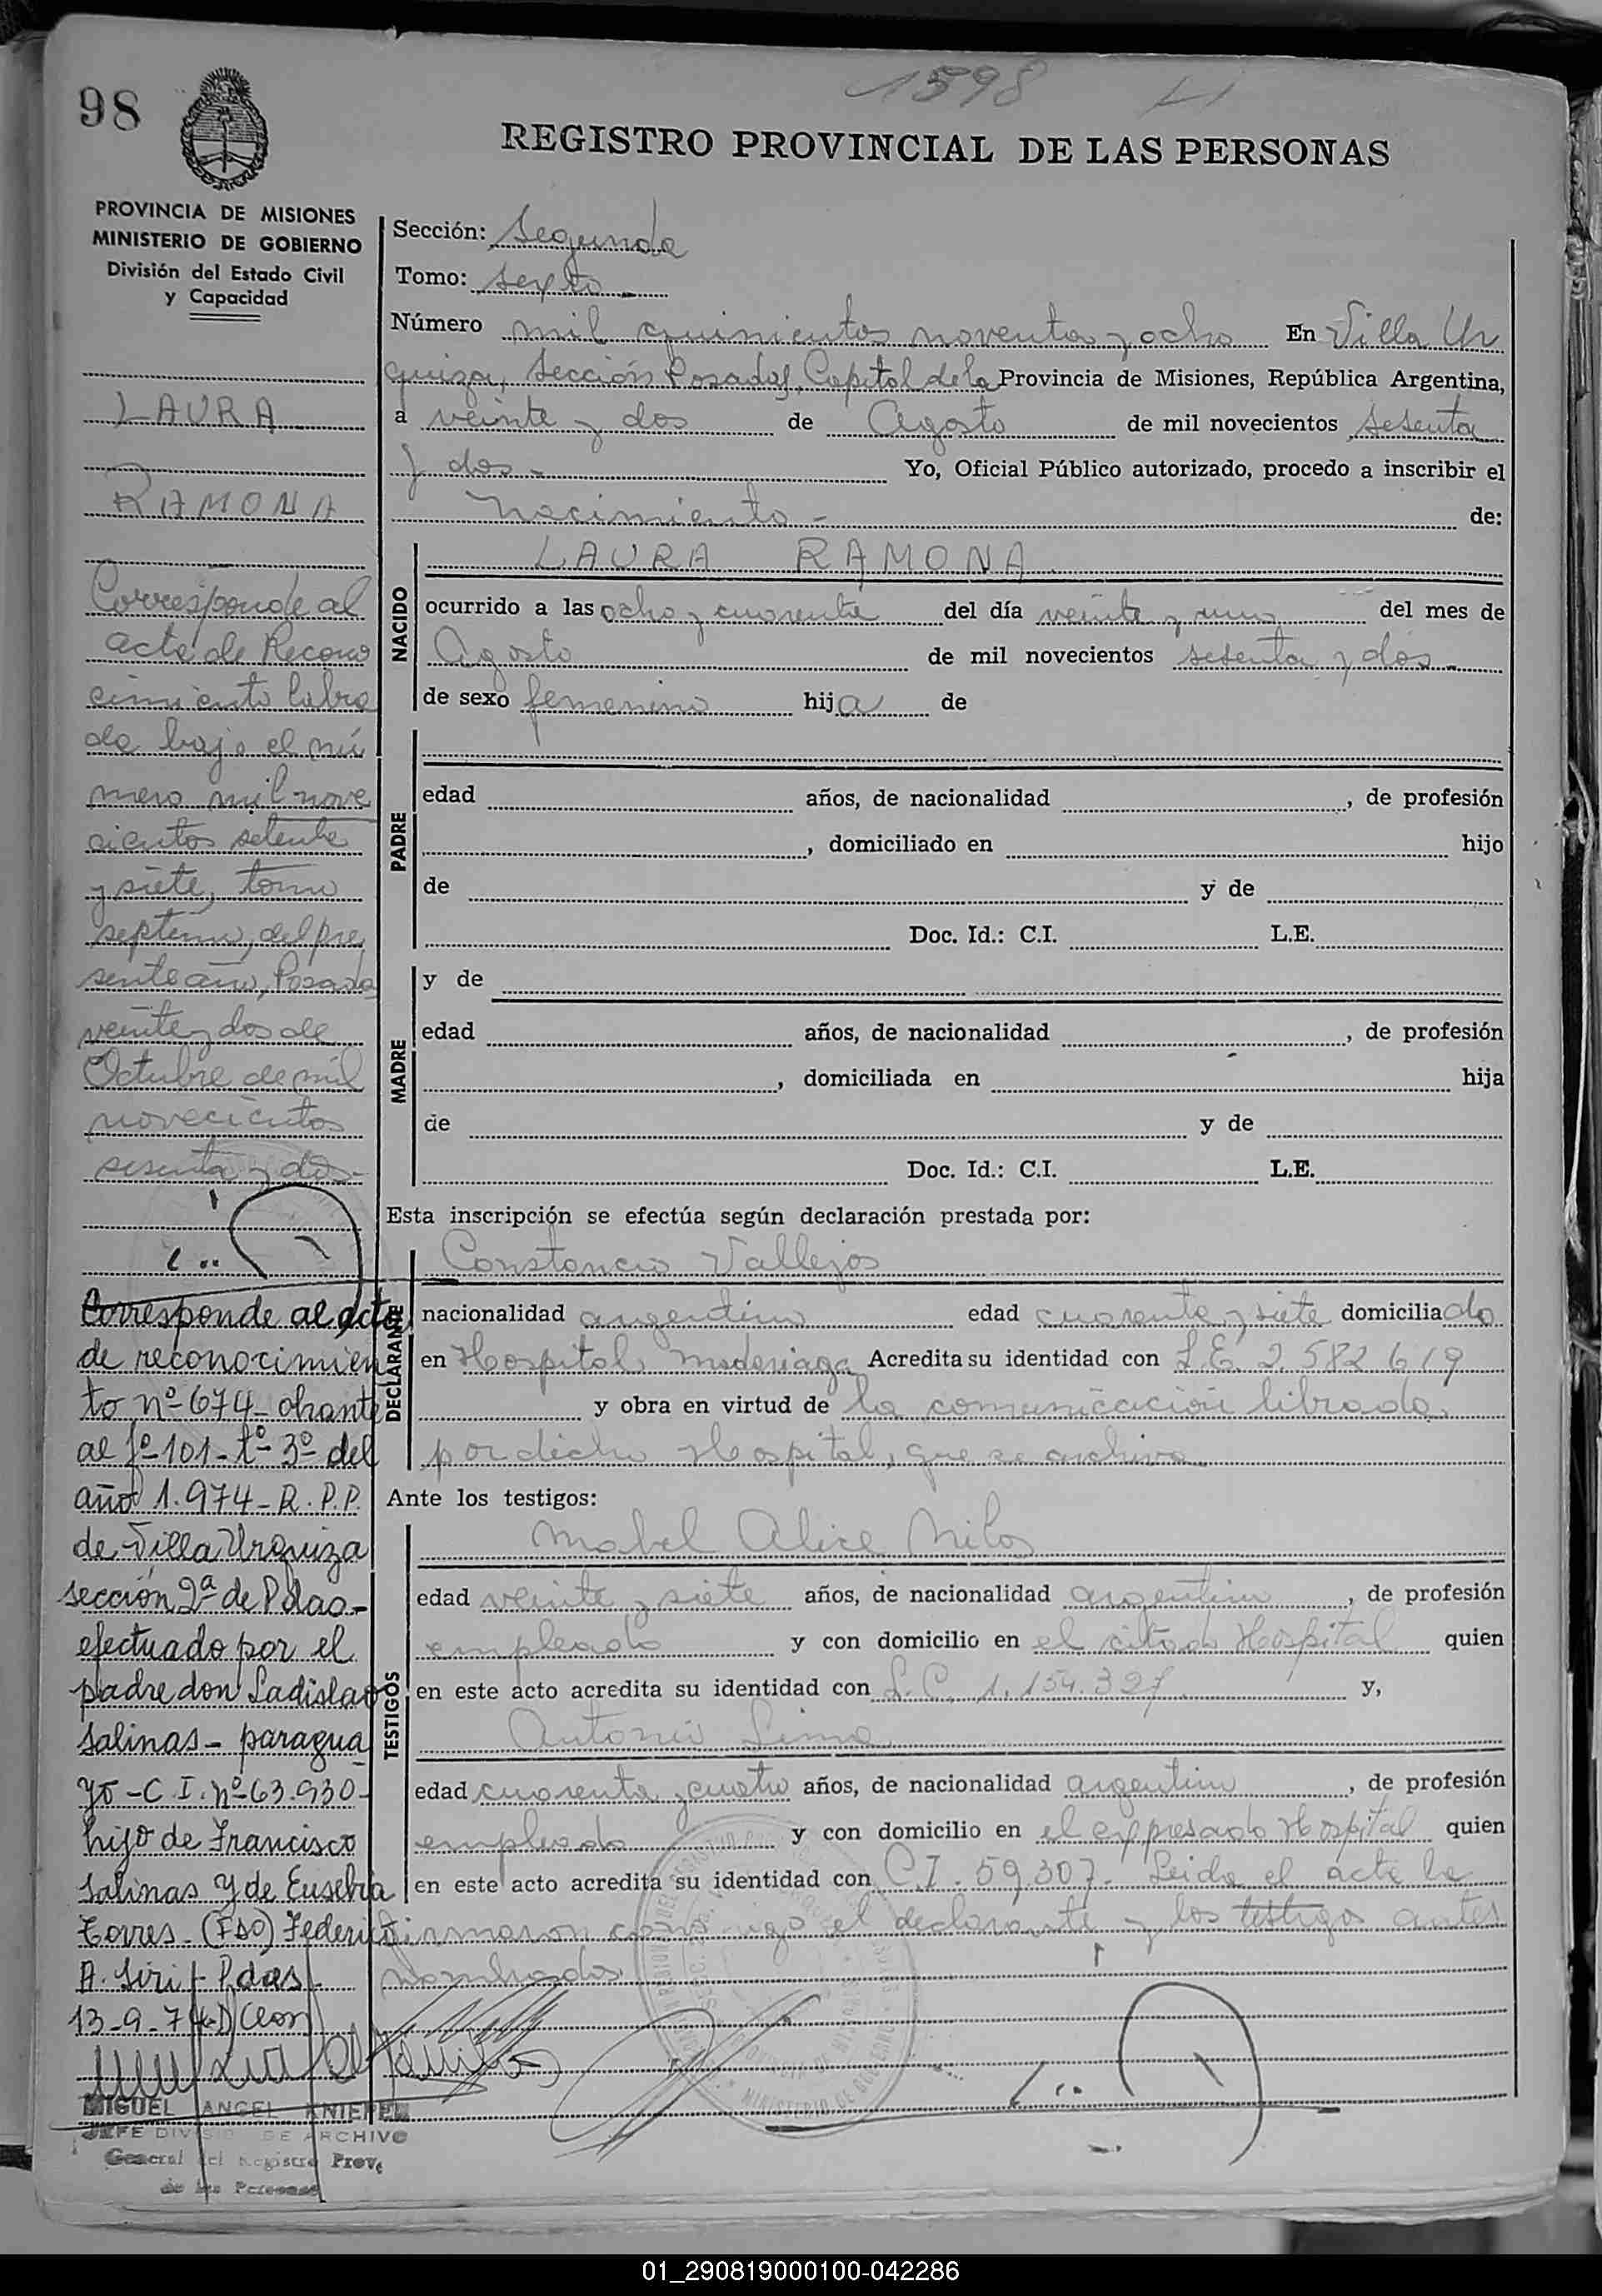 98
1598
REGISTRO PROVINCIAL DE LAS PERSONAS
PROVINCIA DE MISIONES
MINISTERIO DE GOBIERNO
División del Estado Civil
y Capacidad
LAURA
RAMONA
Corresponde al
acta de Recono
cimiento labra
da bajo el nú
mero mil nove
cientos setenta
y siete, tomo
septimo, del pre
sente año, Posadas
veinte y dos de
Octubre de mil
novecientos
sesenta y dos-
Corresponde al acta
de reconocimien
to nº 674- obrante
al fº 101- tº 3º del
año 1.974- R.P.P.
de Villa Urquiza
sección 2ª de Pdas-
efectuado por el
padre don Ladislao
Salinas- paragua
yo- C.I. nº 63.930-
hijo de Francisco
Salinas y de Eusebia
Torres- (FDO) Federico
A. Siri- Pdas.
13-9-74-
MIGUEL ANGEL KNIEPEL
JEFE DIVISION DE ARCHIVO
General del Registro Prov.
de las Personas
Sección: Segunda
Tomo: sexto-
Número mil quinientos noventa y ocho En Villa Ur
quiza, Sección Posadas, Capital de la Provincia de Misiones, República Argentina,
a veinte y dos de Agosto de mil novecientos sesenta
y dos- Yo, Oficial Público autorizado, procedo a inscribir el
nacimiento- de:
NACIDO
LAURA RAMONA
ocurrido a las ocho y cuarenta del día veinte y uno del mes de
Agosto de mil novecientos sesenta y dos-
de sexo femenino hija de
PADRE
edad años, de nacionalidad , de profesión
, domiciliado en hijo
de y de
Doc. Id.: C.I. L.E.
MADRE
y de
edad años, de nacionalidad , de profesión
, domiciliada en hija
de y de
Doc. Id.: C.I. L.E.
Esta inscripción se efectúa según declaración prestada por:
DECLARANTE
Constancio Vallejos
nacionalidad argentino edad cuarenta y siete domiciliado
en Hospital Madariaga Acredita su identidad con L.E. 2.582.619
y obra en virtud de la comunicación librada
por dicho Hospital, que se archiva.
Ante los testigos:
TESTIGOS
Mabel Alice
edad veinte y siete años, de nacionalidad argentina , de profesión
empleada y con domicilio en el citado Hospital quien
en este acto acredita su identidad con L.C. 1.154.327 y,
Antonio
edad cuarenta y cuatro años, de nacionalidad argentino , de profesión
empleado y con domicilio en el expresado Hospital quien
en este acto acredita su identidad con C.I. 59.307- Leida el acta la
firmaron conmigo el declarante y los testigos antes
nombrados.
01_290819000100-042286